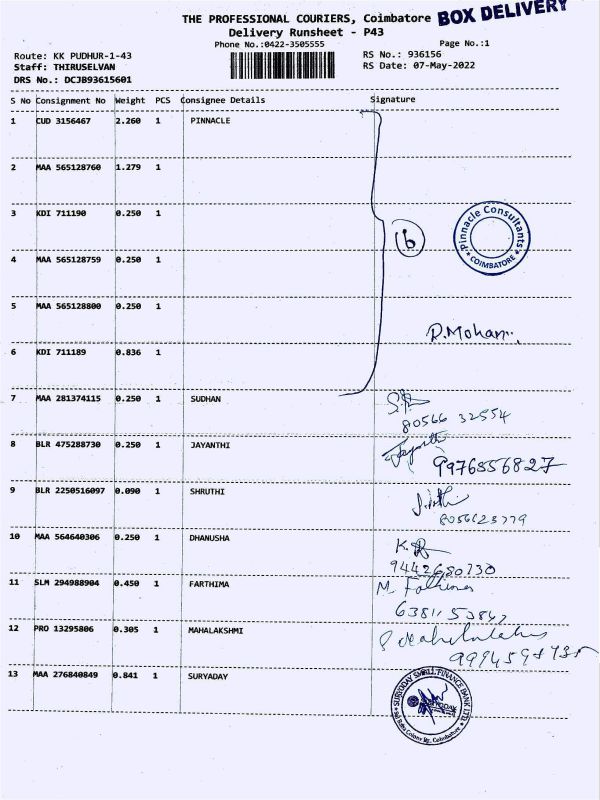 THE PROFESSIONAL COURIERS, Coimbatore BOX DELIVERY
Delivery Runsheet - P43
Phone No.:0422-3505555 Page No.:1
Route: KK PUDHUR-1-43 RS No.: 936156
Staff: THIRUSELVAN RS Date: 07-May-2022
DRS No.: DCJB93615601
S No Consignment No Weight PCS Consignee Details Signature
1 CUD 3156467 2.260 1 PINNACLE
2 MAA 565128760 1.279 1
3 KDI 711190 0.250 1
6
Pinnacle Consultants
* COIMBATORE *
4 MAA 565128759 0.250 1
5 MAA 565128800 0.250 1
D.Mohan
6 KDI 711189 0.836 1
7 MAA 281374115 0.250 1 SUDHAN
80566 32554
8 BLR 475288730 0.250 1 JAYANTHI
Jayanthi
9976556827
9 BLR 2250516097 0.090 1 SHRUTHI
8056623779
10 MAA 564640306 0.250 1 DHANUSHA
K.
9442680730
11 SLM 294988904 0.450 1 FARTHIMA
M. Fathima
12 PRO 13295806 0.305 1 MAHALAKSHMI
13 MAA 276840849 0.841 1 SURYADAY
SURYODAY SMALL FINANCE BANK LTD
SURYODAY
Sai Baba Colony Br. Coimbatore